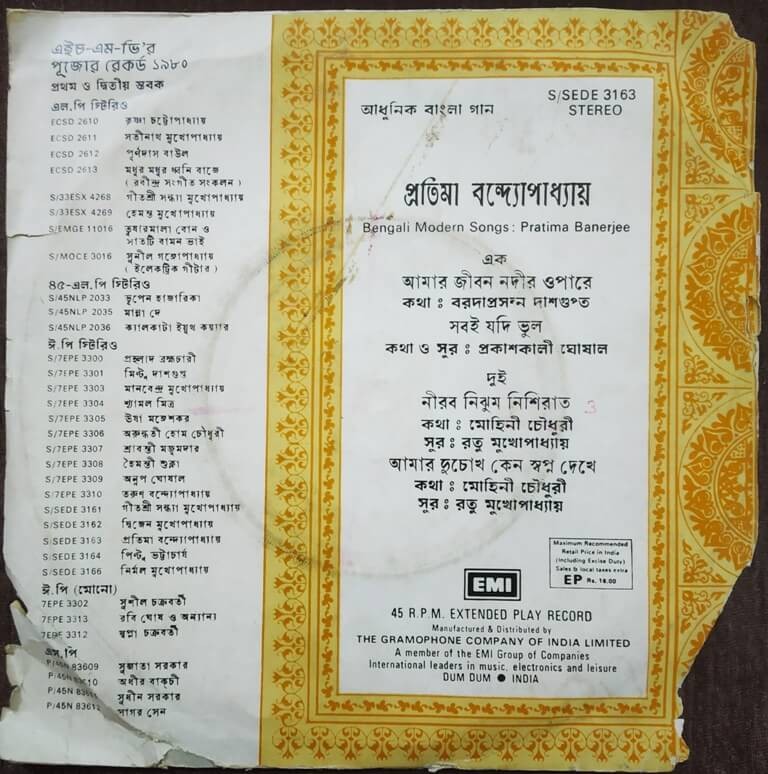 এইচ-এম-ভি'র
পূজোর রেকর্ড ১৯৮০
প্রথম ও দ্বিতীয় স্তবক
এল.পি স্টিরিও
ECSD 2610 রুমা চট্টোপাধ্যায়
ECSD 2611 সতীনাথ মুখোপাধ্যায়
ECSD 2612 পূর্ণদাস বাউল
ECSD 2613 মধুর মধুর ধ্বনি বাজে
( রবীন্দ্র সংগীত সংকলন )
S/33ESX 4268 গীতশ্রী সন্ধ্যা মুখোপাধ্যায়
S/33ESX 4269 হেমন্ত মুখোপাধ্যায়
S/EMGE 11016 তুষারমালা বোন ও
সাতটি বামন ভাই
S/MOCE 3016 সুনীল গঙ্গোপাধ্যায়
( ইলেকট্রিক গীটার )
৪৫-এল.পি স্টিরিও
S/45NLP 2033 ভূপেন হাজারিকা
S/45NLP 2035 মান্না দে
S/45NLP 2036 ক্যালকাটা ইয়ুথ কয়্যার
ই.পি স্টিরিও
S/7EPE 3300 প্রহ্লাদ ব্রহ্মচারী
S/7EPE 3301 মিণ্টু দাশগুপ্ত
S/7EPE 3303 মানবেন্দ্র মুখোপাধ্যায়
S/7EPE 3304 শ্যামল মিত্র
S/7EPE 3305 উষা মঙ্গেশকর
S/7EPE 3306 অরুন্ধতী হোম চৌধুরী
S/7EPE 3307 শ্রাবন্তী মজুমদার
S/7EPE 3308 হৈমন্তী শুক্লা
S/7EPE 3309 অনুপ ঘোষাল
S/7EPE 3310 তরুণ বন্দ্যোপাধ্যায়
S/SEDE 3161 গীতশ্রী সন্ধ্যা মুখোপাধ্যায়
S/SEDE 3162 দ্বিজেন মুখোপাধ্যায়
S/SEDE 3163 প্রতিমা বন্দ্যোপাধ্যায়
S/SEDE 3164 পিণ্টু ভট্টাচার্য
S/SEDE 3166 নির্মল মুখোপাধ্যায়
ই.পি (মোনো)
7EPE 3302 সুশীল চক্রবর্তী
7EPE 3313 রবি ঘোষ ও অন্যান্য
7EPE 3312 স্বপ্না চক্রবর্তী
এস.পি
P/45N 83609 সুজাতা সরকার
P/45N 83610 অধীর বাক্‌চী
P/45N সুধীন সরকার
P/45N সাগর সেন
S/SEDE 3163
STEREO
আধুনিক বাংলা গান
প্রতিমা বন্দ্যোপাধ্যায়
Bengali Modern Songs: Pratima Banerjee
এক
আমার জীবন নদীর ওপারে
কথা : বরদাপ্রসন্ন দাশগুপ্ত
সবই যদি ভুল
কথা ও সুর : প্রকাশকালী ঘোষাল
দুই
নীরব নিঝুম নিশিরাত 3
কথা : মোহিনী চৌধুরী
সুর : রতু মুখোপাধ্যায়
আমার দুচোখ কেন স্বপ্ন দেখে
কথা : মোহিনী চৌধুরী
সুর : রতু মুখোপাধ্যায়
Maximum Recommended
Retail Price in India
(Including Excise Duty)
Sales & local taxes extra
EP Rs. 16.00
EMI
45 R.P.M. EXTENDED PLAY RECORD
Manufactured & Distributed by
THE GRAMOPHONE COMPANY OF INDIA LIMITED
A member of the EMI Group of Companies
International leaders in music, electronics and leisure
DUM DUM ● INDIA